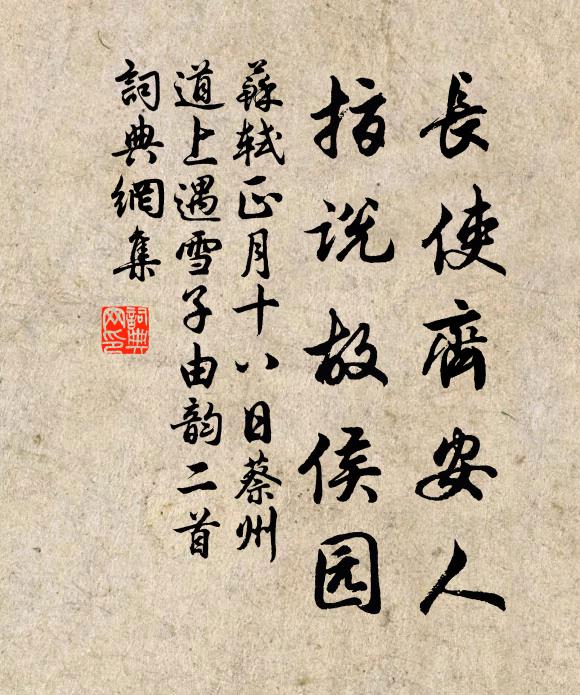 長使齊安人
指说故侯园
蘇軾正月十八日蔡州
道上遇雪子由韵二首
詞典網集
詞典
网印